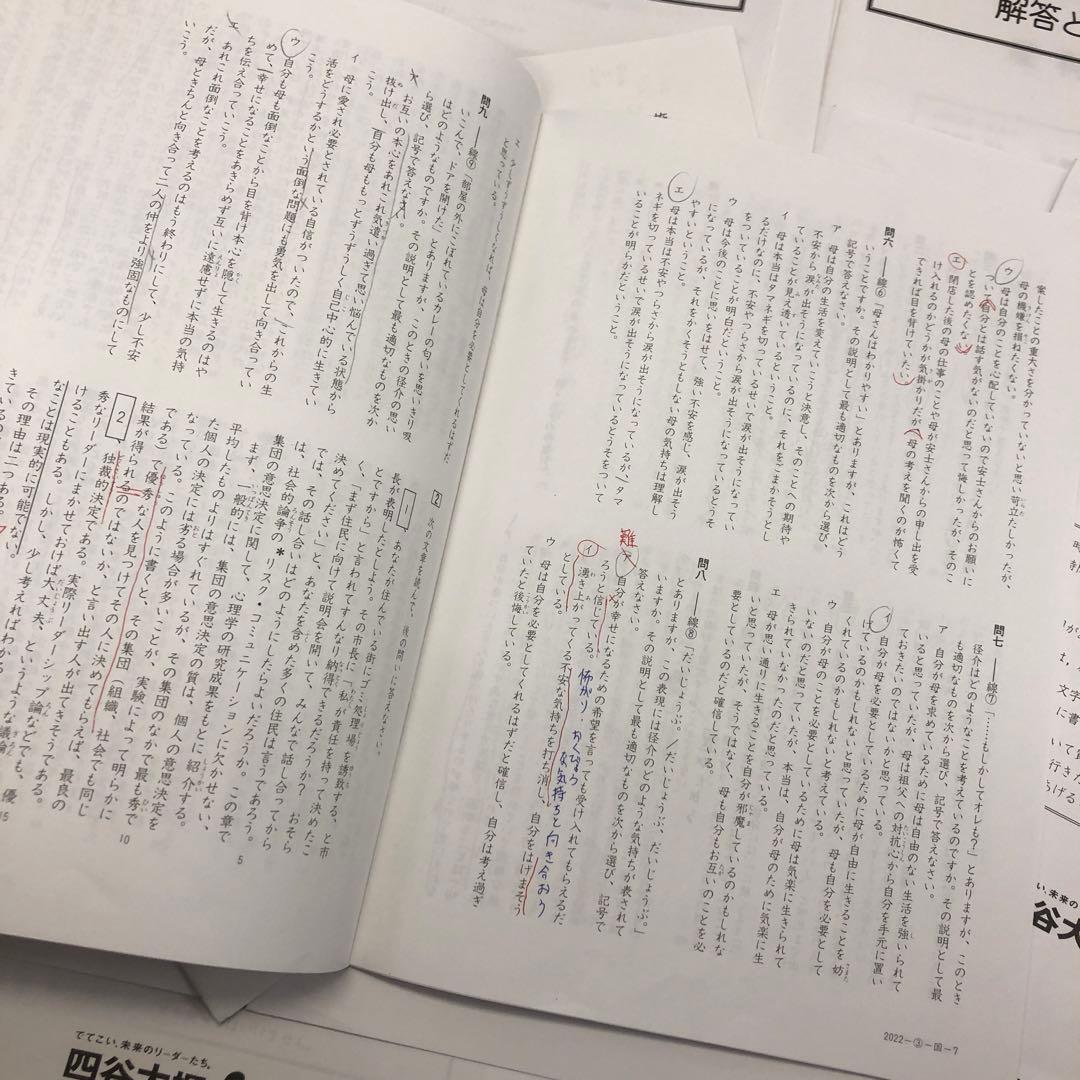 案したことの重大さを分かっていないと思い苛立たしかったが、
母の機嫌を損ねたくない。
ウ 母は自分のことを心配していないので安士さんからのお願いに
ついて自分とは話す気がないのだと思って悔しかったが、そのこ
とを認めたくない。
エ 閉店した後の母の仕事のことや母が安士さんからの申し出を受
け入れるのかどうかが気掛かりだが、母の考えを聞くのが怖くて
できれば目を背けていたい。
問六 ――線⑥「母さんはわかりやすい」とありますが、これはどう
いうことですか。その説明として最も適切なものを次から選び、
記号で答えなさい。
ア 母は自分の生活を変えていこうと決意し、そのことへの期待や
不安から涙が出そうになっているのに、それをごまかそうとし
ていることが見え透いているということ。
イ 母は本当はタマネギを切っているせいで涙が出そうになってい
るだけなのに、不安やつらさから涙が出そうになっているとうそ
をついていることが明白だということ。
ウ 母は今後のことに思いをはせて、強い不安を感じ、涙が出そう
になっているが、それをかくそうともしない母の気持ちは理解し
やすいということ。
エ 母は本当は不安やつらさから涙が出そうになっているが、タマ
ネギを切っているせいで涙が出そうになっているとうそをついて
いることが明らかだということ。
問七 ――線⑦「……もしかしてオレも？」とありますが、このとき
径介はどのようなことを考えているのですか。その説明として最
も適切なものを次から選び、記号で答えなさい。
ア 自分が母を求めているために母は自由のない生活を強いられて
いると思っていたが、母は祖父への対抗心から自分を手元に置い
ておきたいのではないかと思っている。
イ 自分が母を必要としているために母が自由に生きることを妨
げているのかもしれないと思っていたが、母も自分を必要として
くれているのかもしれないと思っている。
ウ 自分が母のことを必要としているために母は気楽に生きられて
いないのだと思っていたが、本当は、自分が母のために気楽に生
きられていなかったのだと思っている。
エ 母が思い通りに生きることを自分が邪魔しているのかもしれな
いと思っていたが、そうではなく、母も自分もお互いのことを必
要としているのだと確信している。
問八 ――線⑧「だいじょうぶ。／だいじょうぶ、だいじょうぶ。」
とありますが、この表現には径介のどのような気持ちが表されて
いますか。その説明として最も適切なものを次から選び、記号で
答えなさい。
難
ア 自分が幸せになるための希望を言っても受け入れてもらえるだ
ろうと信じている。
イ 湧き上がってくる不安な気持ちを打ち消し、自分をはげまそう
としている。
怖がり・かくなろう
な気持ちと向き合おう
ウ 母は自分を必要としてくれるはずだと確信し、自分は考え過ぎ
ていたと後悔している。
2022－③－国－7
なれば、母は自分を必要としてくれるはずだ
と思っている。
問九 ――線⑨「部屋の外にこぼれているカレーの匂いを思いきり吸
いこんで、ドアを開けた」とありますが、このときの径介の思い
はどのようなものですか。その説明として最も適切なものを次か
ら選び、記号で答えなさい。
ア お互いの本心をあれこれ気遣い過ぎて思い悩んでいる状態から
抜け出し、自分も母ももっとずうずうしく自己中心的に生きてい
こう。
イ 母に愛され必要とされている自信がついたので、これからの生
活をどうするかという面倒な問題にも勇気を出して向き合ってい
こう。
ウ 自分も母も面倒なことから目を背け本心を隠して生きるのはや
めて、幸せになることをあきらめず互いに遠慮せずに本当の気持
ちを伝え合っていこう。
エ あれこれ面倒なことを考えるのはもう終わりにして、少し不安
だが、母ときちんと向き合って二人の仲をより強固なものにして
いこう。
2 次の文章を読んで、後の問に答えなさい。
あなたが住んでいる街にゴミ処理場を誘致する、と市
長が表明したとしよう。その市長に「私が責任を持って決めたこ
とですから」と言われてすんなり納得できるだろうか？ おそら
く、「まず住民に向けて説明会を開いて、みんなで話し合ってから
決めてください」と、あなたを含めた多くの住民は言うであろう。
では、その話し合いはどのようにしたらよいだろうか。この章で
は、社会的論争の＊リスク・コミュニケーションに欠かせない、
集団の意思決定に関して、心理学の研究成果をもとに紹介する。
まず、一般的には、集団の意思決定の質は、個人の意思決定を
平均したものよりはすぐれているが、その集団のなかで最も秀で
た個人の決定には劣る場合が多いことが、実験によって明らかに
なっている。このように書くと、その集団（組織、社会でも同じ
である）で優秀な人を見つけてその人に決めてもらえば、最良の
結果が得られるのではないか、と言い出す人が出てきそうである。
2 独裁的決定である。実際リーダーシップ論などでも、優
秀なリーダーにまかせておけば大丈夫、というような議論
けることもある。しかし、少し考えればわかる
なことは現実的に可能でない。
その理由は二つある。
5
10
15
解答と
でてこい、未来のリーダーたち。
四谷大
い、未来の
谷大